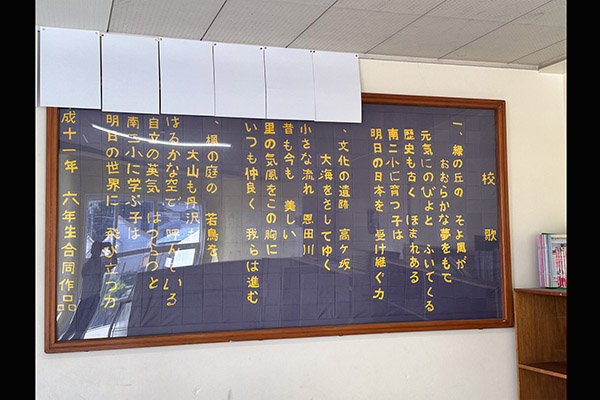 校歌
一、緑の丘の そよ風が
おおらかな夢をもて
元気にのびよと ふいてくる
歴史も古く ほまれある
南二小に育つ子は
明日の日本を 受け継ぐ力
、文化の遺跡 高ヶ坂
大海をさしてゆく
小さな流れ 恩田川
昔も今も 美しい
里の気風をこの胸に
いつも仲良く 我らは進む
、楓の庭の 若鳥を
大山も丹沢も
はるかな空で 呼んでいる
自立の英気 はつらつと
南二小に学ぶ子は
明日の世界に 飛び立つ力
成十一年 六年生合同作品